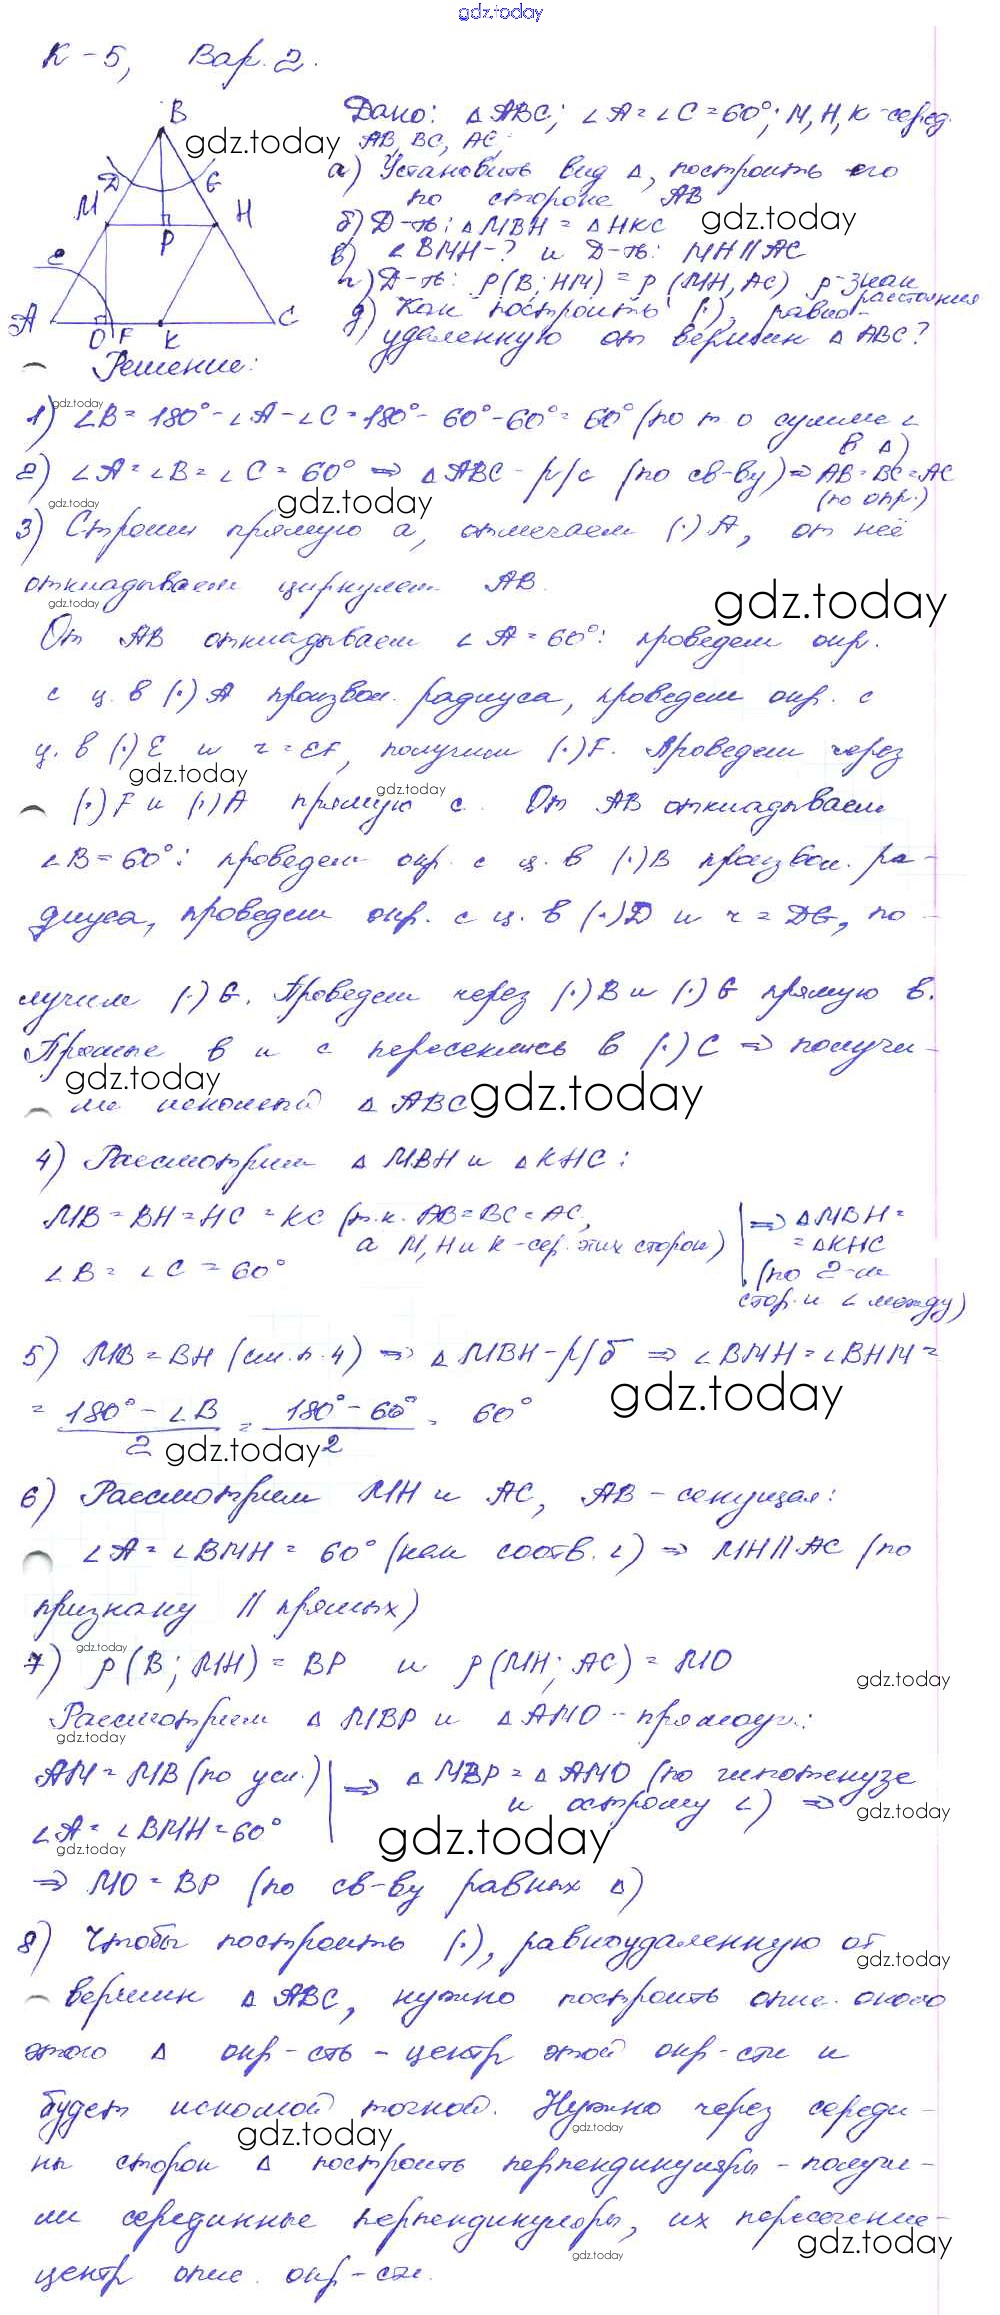 gdz.today
К-5, Вар. 2.
Дано: △ABC; ∠A=∠C=60°; M, H, K-серед.
AB, BC, AC;
а) Установить вид △, построить его
по стороне AB
б) Д-ть: △MBH = △HKC
в) ∠BMH-? и Д-ть: MH||AC
г) Д-ть: ρ(B; HM) = ρ(MH, AC) ρ-знак
расстояния
д) Как построить (·), равно-
удаленную от вершин △ABC?
B
D G
M H
P
e
A O F K C
Решение:
1) ∠B = 180° - ∠A - ∠C = 180° - 60° - 60° = 60° (по т о сумме ∠
в △)
2) ∠A = ∠B = ∠C = 60° ⇒ △ABC - р/с (по св-ву) ⇒ AB = BC = AC
(по опр.)
3) Строим прямую a, отмечаем (·)A, от неё
откладываем циркулем AB.
От AB откладываем ∠A = 60°: проведем окр.
с ц. в (·)A произвол. радиуса, проведем окр. с
ц. в (·)E и r = EF, получим (·)F. Проведем через
(·)F и (·)A прямую c. От AB откладываем
∠B = 60°: проведем окр. с ц. в (·)B произвол. ра-
диуса, проведем окр. с ц. в (·)D и r = DG, по-
лучим (·)G. Проведем через (·)B и (·)G прямую в.
Прямые в и c пересеклись в (·)C ⇒ получи-
ли искомый △ABC
4) Рассмотрим △MBH и △KHC:
MB = BH = HC = KC (т.к. AB = BC = AC,
а M, H и K - сер. этих сторон)
∠B = ∠C = 60°
⇒ △MBH =
= △KHC
(по 2-м
стор. и ∠ между)
5) MB = BH (см. п. 4) ⇒ △MBH - р/б ⇒ ∠BMH = ∠BHM =
= (180° - ∠B)/2 = (180° - 60°)/2 = 60°
6) Рассмотрим MH и AC, AB - секущая:
∠A = ∠BMH = 60° (как соотв. ∠) ⇒ MH||AC (по
признаку || прямых)
7) ρ(B; MH) = BP и ρ(MH; AC) = MO
Рассмотрим △MBP и △AMO - прямоуг.:
AM = MB (по усл.)
∠A = ∠BMH = 60°
⇒ △MBP = △AMO (по гипотенузе
и острому ∠) ⇒
⇒ MO = BP (по св-ву равных △)
8) Чтобы построить (·), равноудаленную от
вершин △ABC, нужно построить опис. около
этого △ окр-сть - центр этой окр-сти и
будет искомой точкой. Нужно через середи-
ны сторон △ построить перпендикуляры - получи-
ли серединные перпендикуляры, их пересечение-
центр опис. окр-сти.